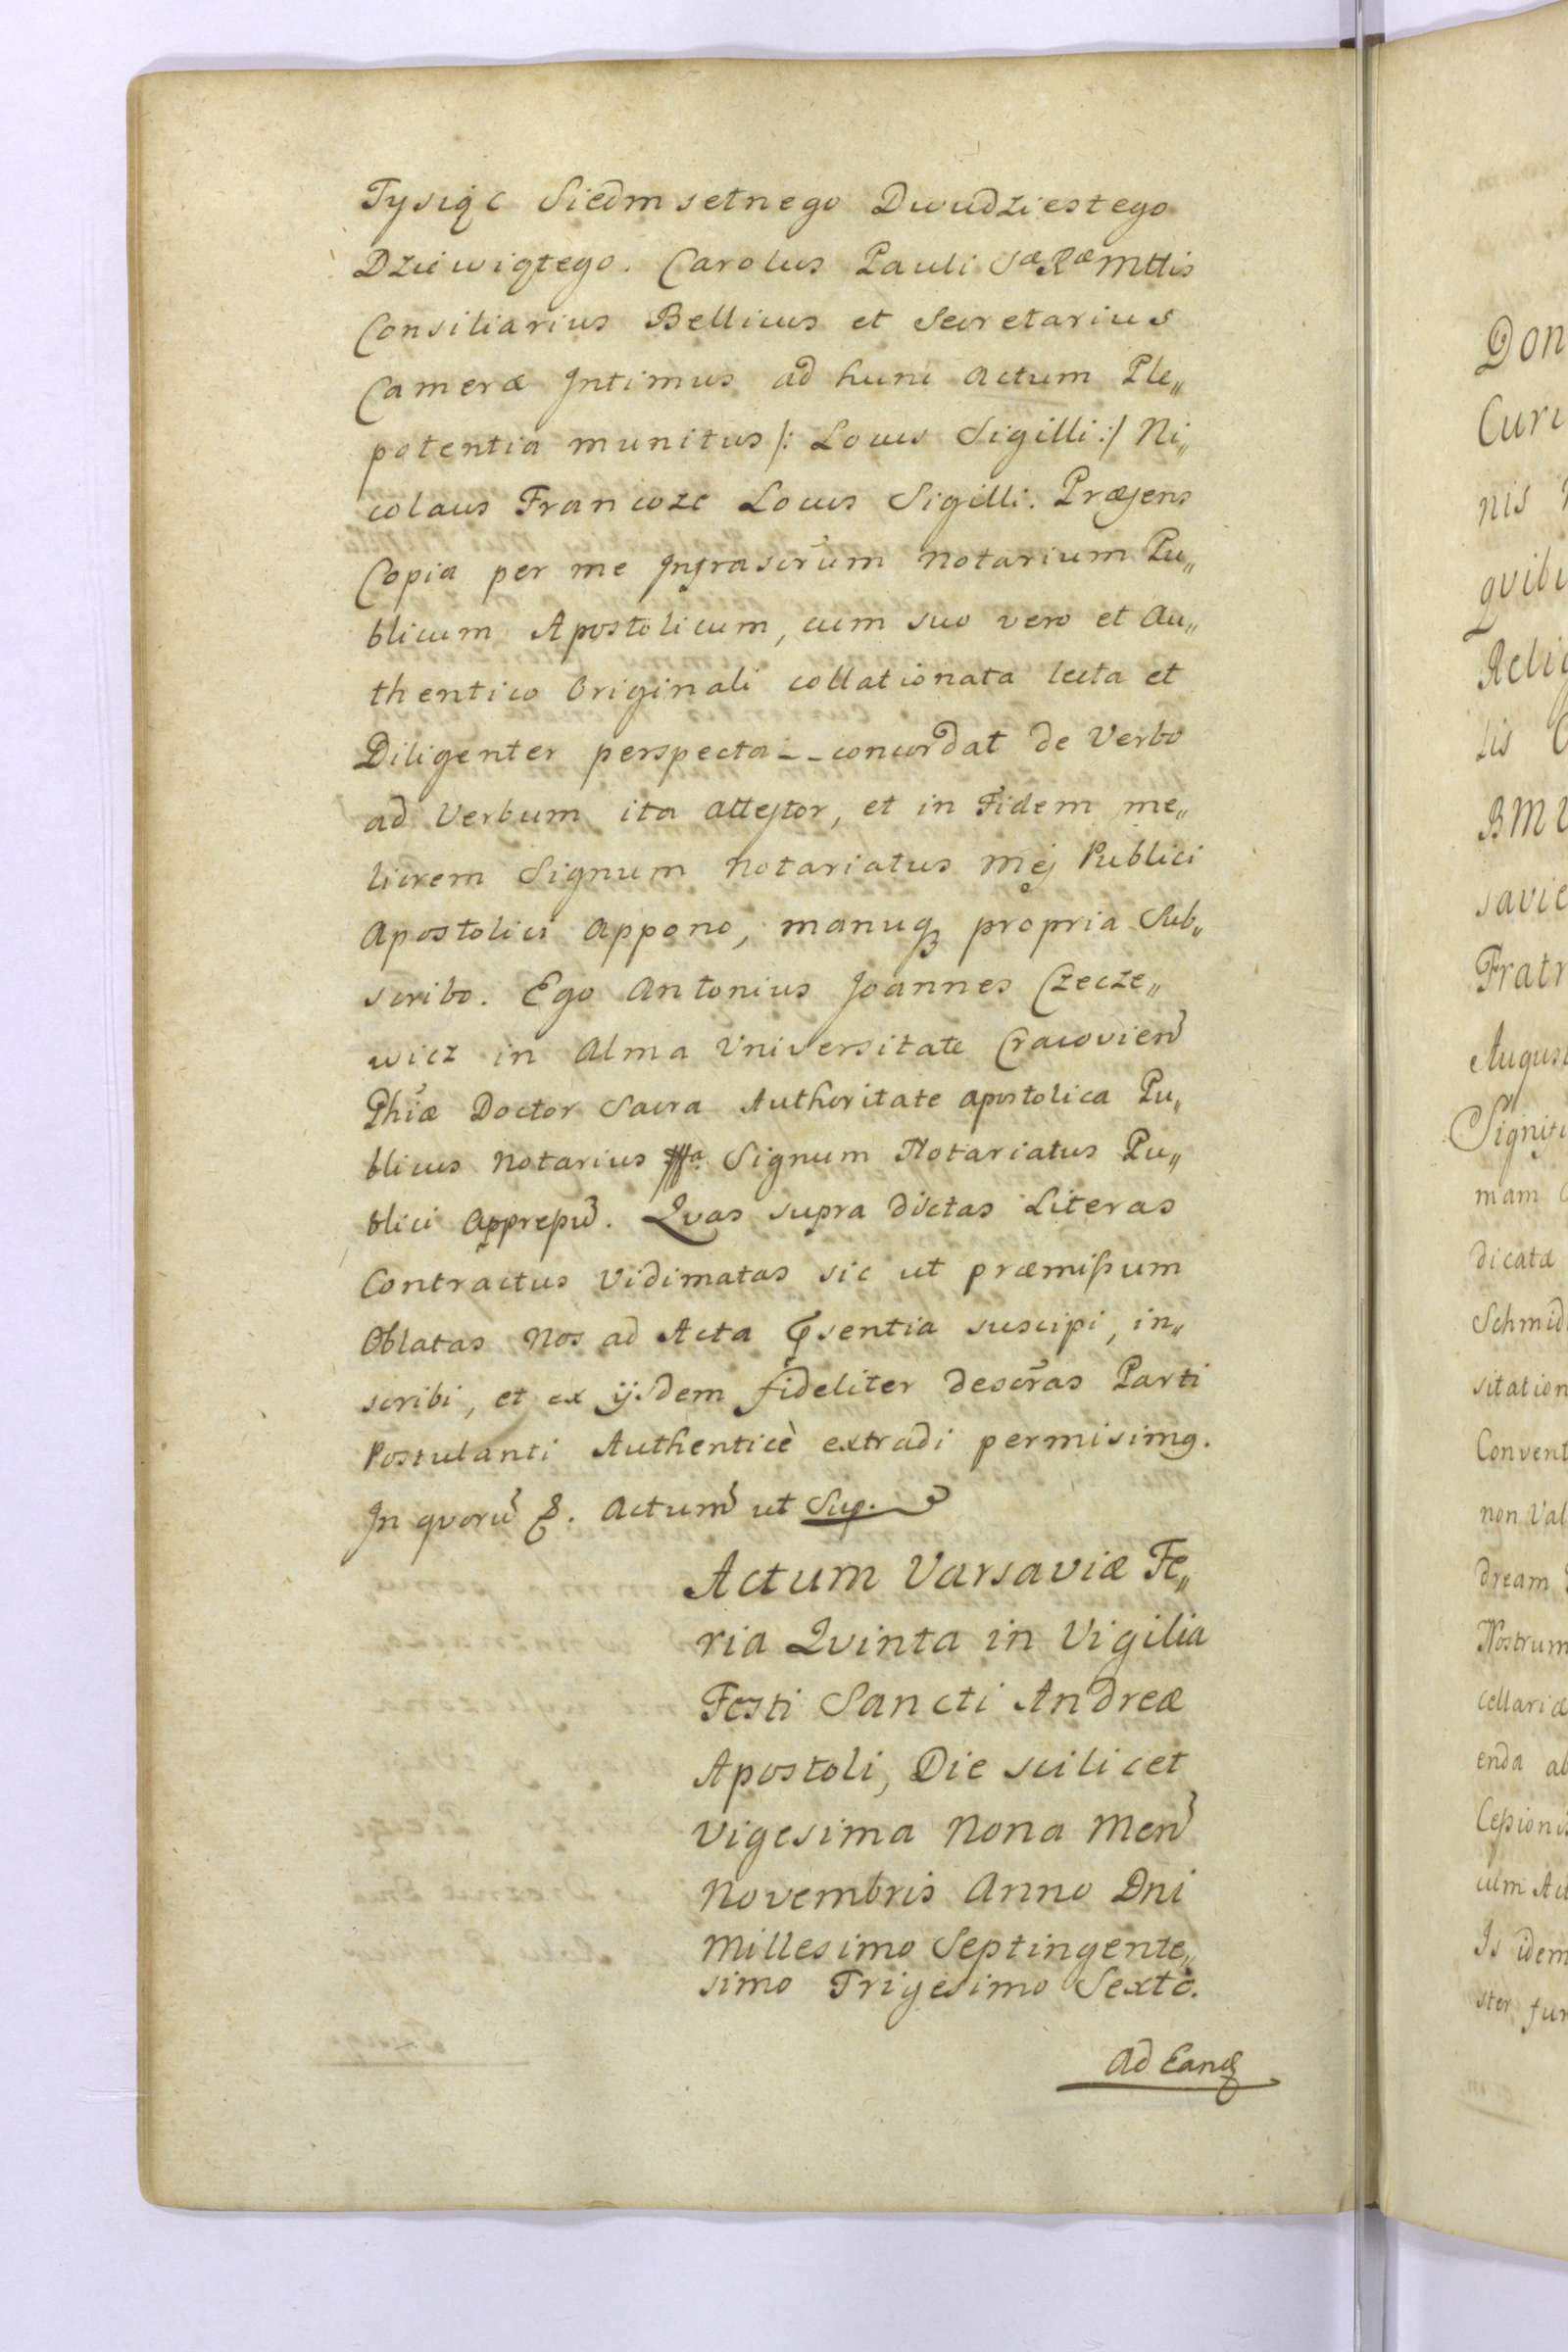 Tysiąc Siedmsetnego Dwudziestego
Dziewiątego. Carolus Pauli Sæ Ræ Mttis
Consiliarius Bellicus et Secretarius
Cameræ Intimus ad hunc actum Ple„
potentia munitus /: Locus Sigilli :/ Ni„
colaus Francozc Locus Sigilli. Præsens
Copia per me Infrascrũm Notarium Pu„
blicum Apostolicum, cum suo vero et Au„
thentico Originali collationata lecta et
Diligenter perspecta -- concordat de Verbo
ad Verbum ita attestor, et in Fidem me„
liorem Signum Notariatus mej Publici
Apostolici appono, manuq; propria Sub„
scribo. Ego Antonius Joannes Czecze„
wicz in Alma Universitate Cracovien
Phiæ Doctor Sacra Authoritate apostolica Pu„
blicus Notarius Signum Notariatus Pu„
blici
Quas supra dictas Literas
Contractus Vidimatas sic ut præmißum
Oblatas Nos ad Acta Prsentia suscipi, in„
scribi, et ex ijsdem fideliter descr̃as Parti
Postulanti Authenticè extradi permisimg.
In quoru &. Actum ut Sup.
Actum Varsaviæ Fe„
ria Qvinta in Vigilia
Festi Sancti Andreæ
Apostoli, Die scilicet
Vigesima Nona Men
Novembris Anno Dni
Millesimo Septingente„
simo Trigesimo Sexto.
Ad Eand
Don
Curi
nis
qvibu
Relig
lis
BMV
savie
Fratr
Augus
Signifi
mam
dicatæ
Schmid
sitation
Convent
non Val
dream
Nostrum
cellariæ
enda ab
Ceßionis
Is idem
ster fun